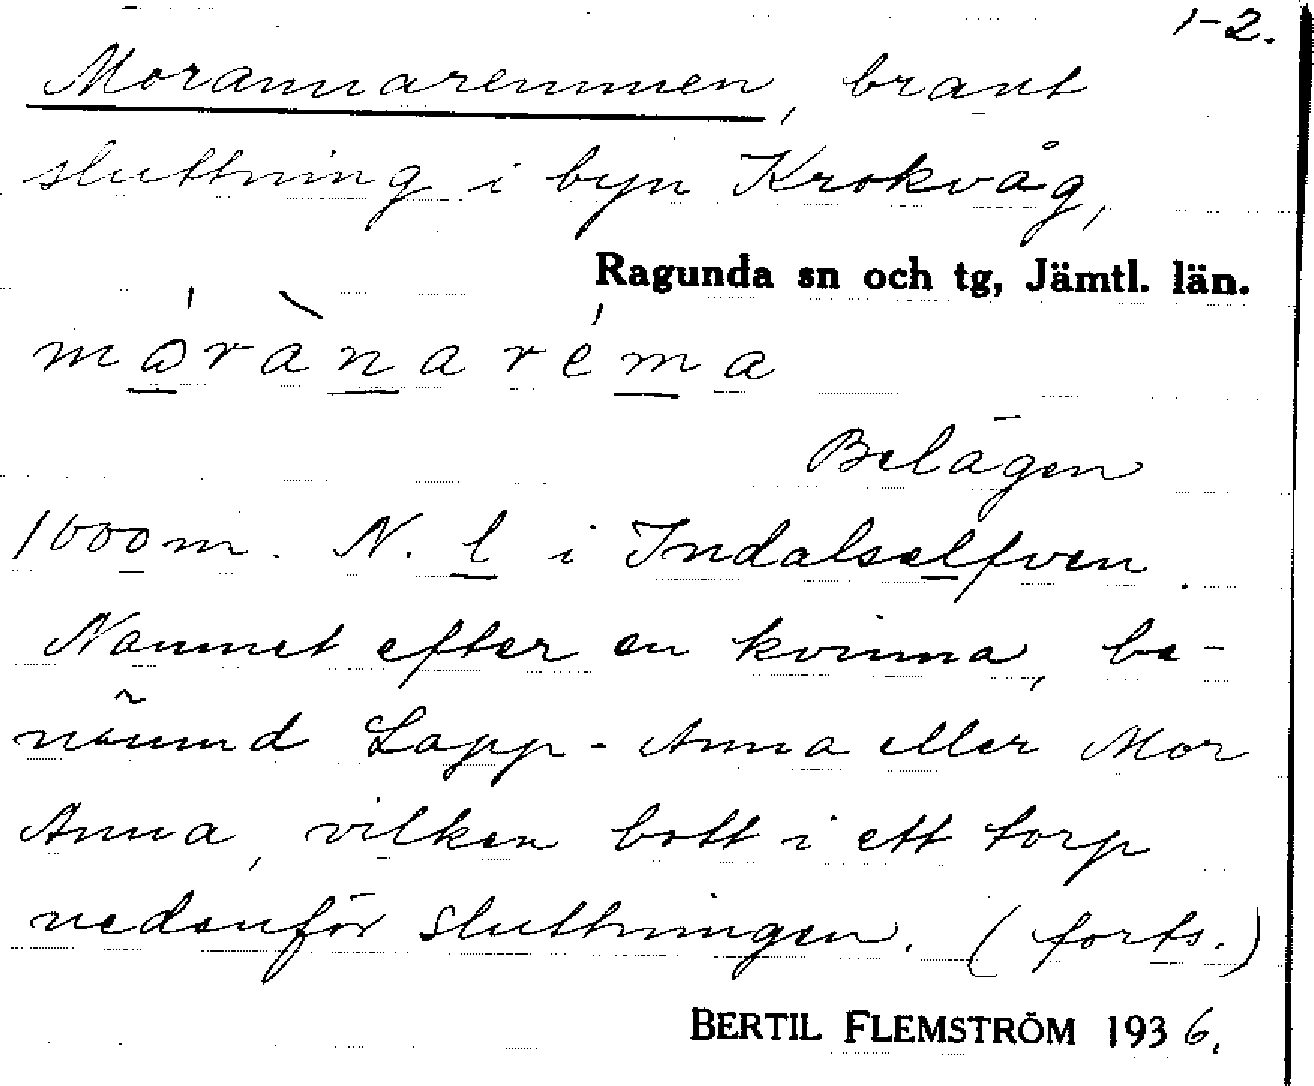 1-2.
Morannaremmen, brant
sluttning i byn Krokvåg,
Ragunda sn och tg, Jämtl. län.
mo̲ràn̲arém̲a
Belägen
1000 m. N. l i Indalselfven.
Namnet efter en kvinna, be-
nämnd Lapp-Anna eller Mor
Anna, vilken bott i ett torp
nedenför sluttningen. (forts.)
BERTIL FLEMSTRÖM 1936.